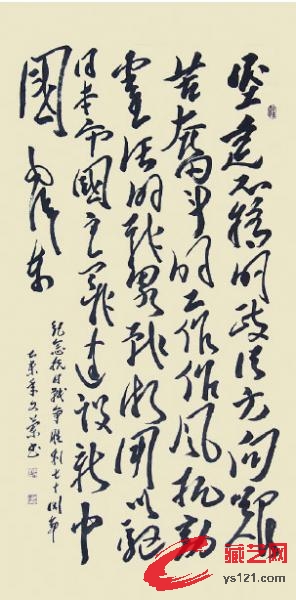 坚定不移的政治方向艰
苦奮斗的工作作风机动
灵活的战略战术用以驱
日本帝國主义建设新中
國 毛泽东
纪念抗日战争胜利七十周年
藏艺网
ys121.com